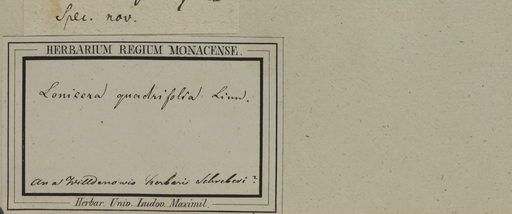 Spec. nov.
HERBARIUM REGIUM MONACENSE.
Lonicera quadrifolia Linn.
an a Willdenowio herbario Schreberi?
Herbar. Univ. Ludov. Maximil.